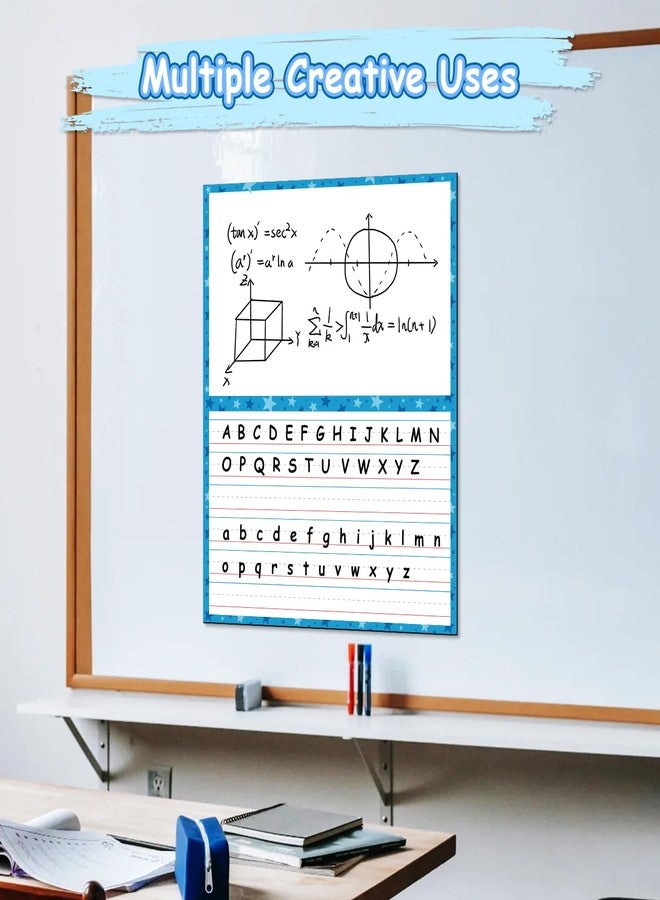 Multiple Creative Uses
(tan x)' = sec²x
(aʳ)' = aʳ ln a
Z
Y
X
∑ₖ₌₁ⁿ 1/k > ∫₁ⁿ⁺¹ 1/x dx = ln(n+1)
A B C D E F G H I J K L M N
O P Q R S T U V W X Y Z
a b c d e f g h i j k l m n
o p q r s t u v w x y z